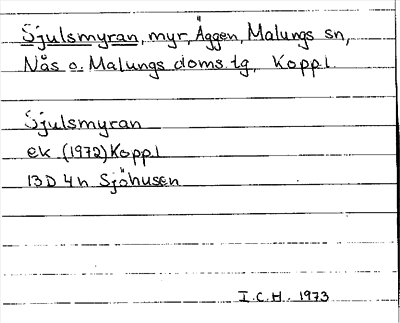 Sjulsmyran, myr, Äggen, Malungs sn,
Nås o. Malungs doms.tg, Koppl.
Sjulsmyran
ek (1972) Koppl
13D 4h Sjöhusen
I.C.H. 1973